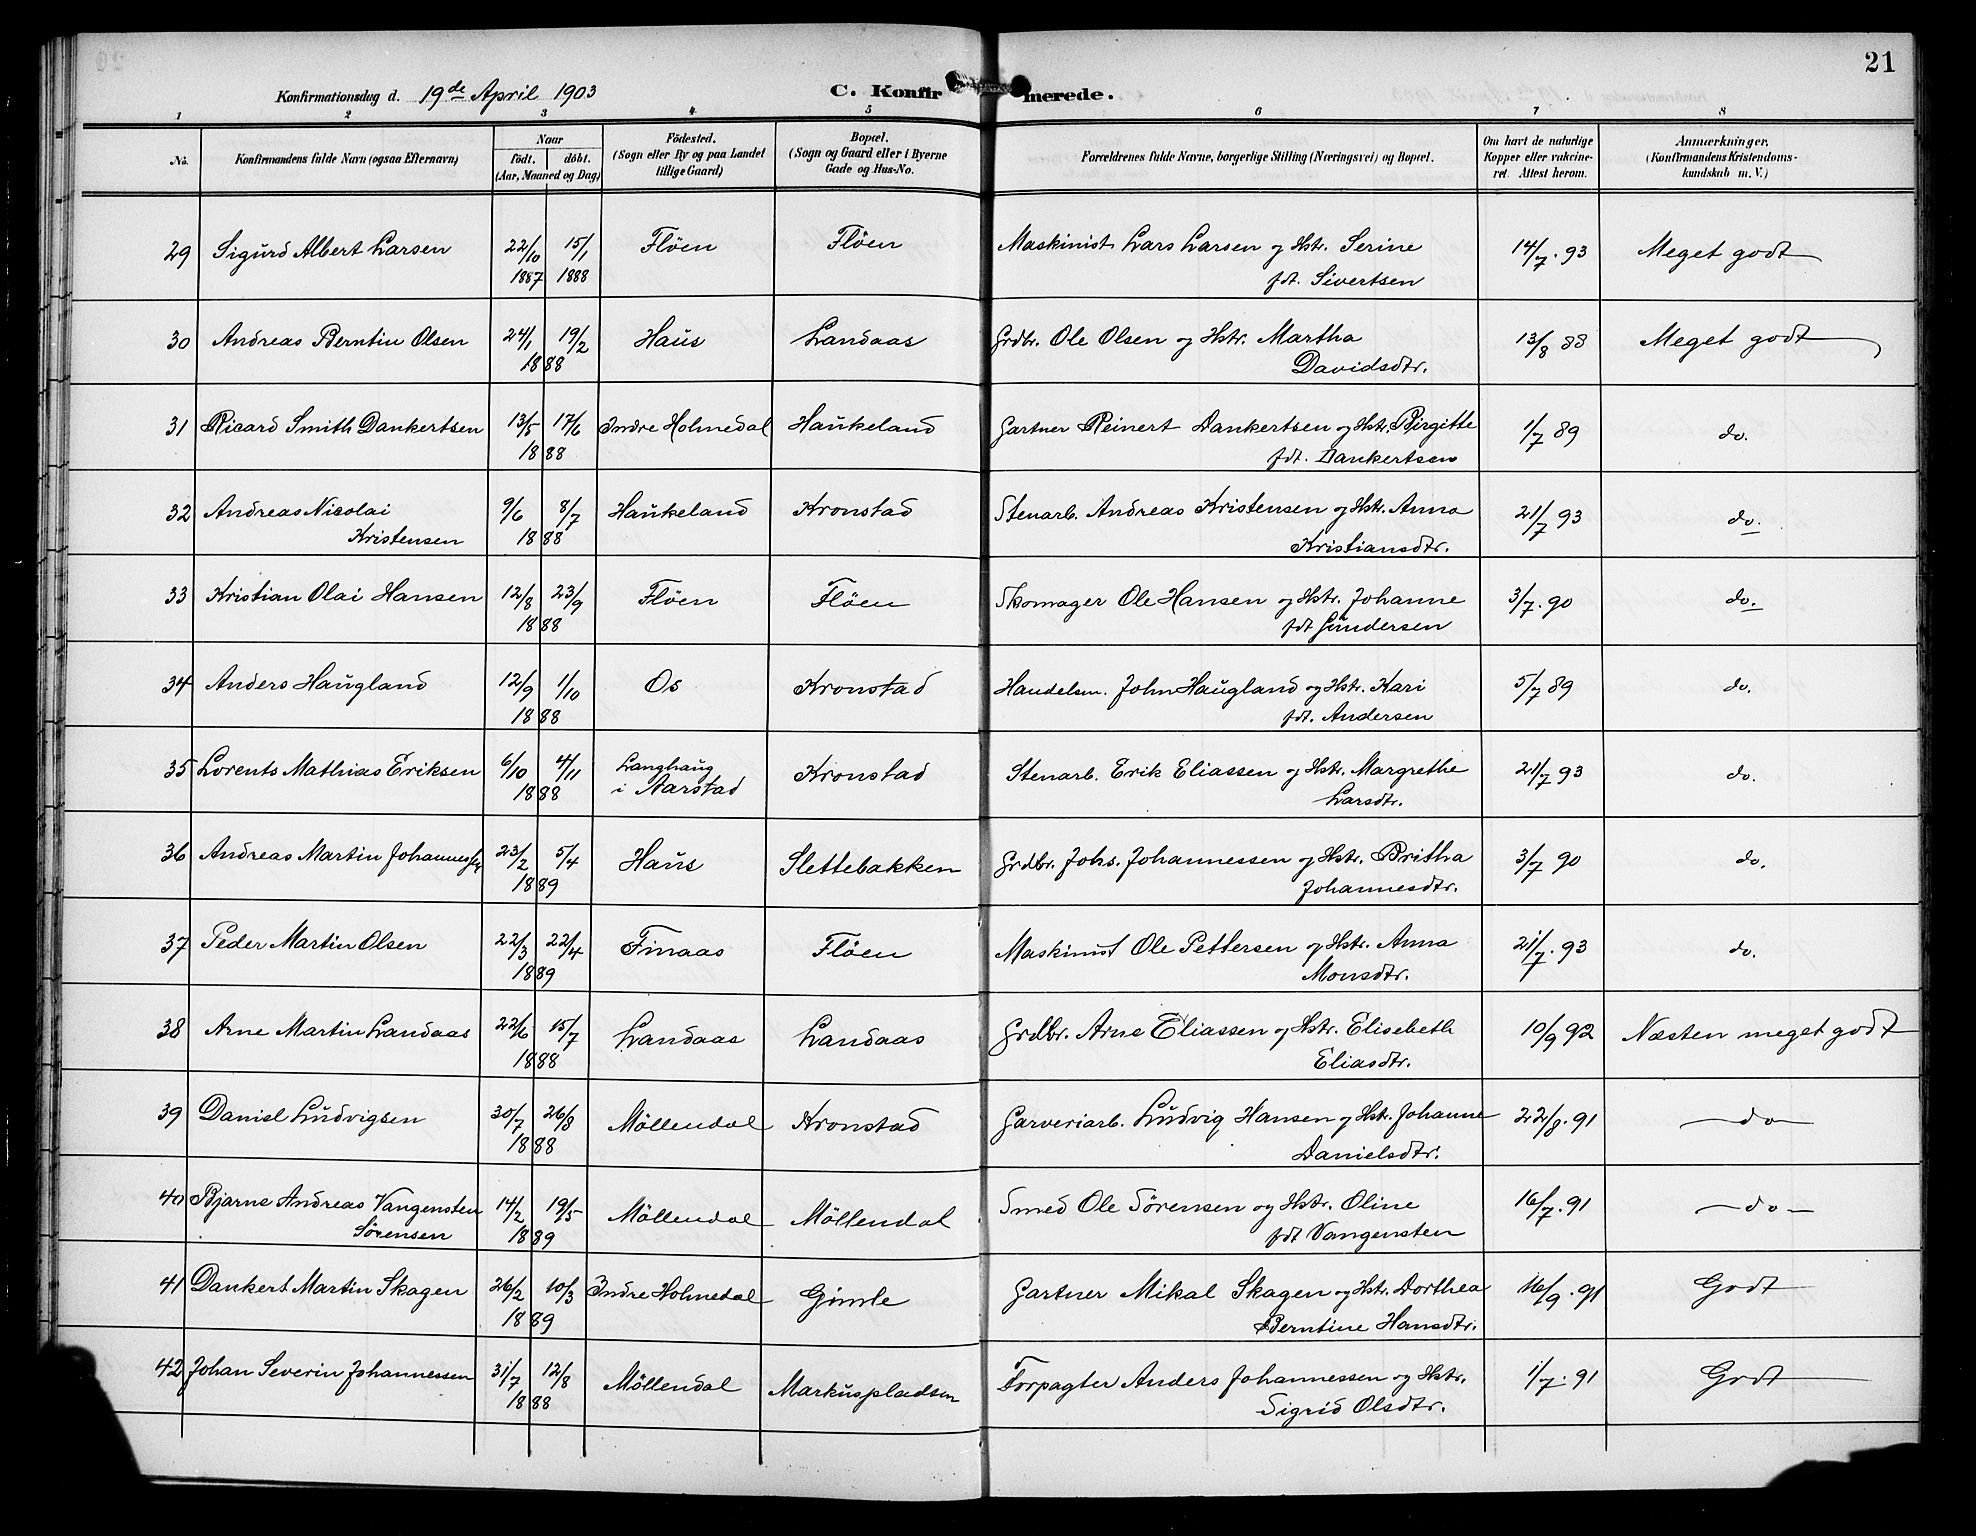 21
Konfirmationsdag d. 19de April 1903 C. Konfirmerede.
1 2 3 4 5 6 7 8
No. Konfirmandens fulde Navn (ogsaa Efternavn) Naar født. døbt. (Aar, Maaned og Dag) Födested. (Sogn eller By og paa Landet tillige Gaard) Bopæl. (Sogn og Gaard eller i Byerne Gade og Hus-No. Forældrenes fulde Navne, borgerlige Stilling (Næringsvei) og Bopæl. Om havt de naturlige Kopper eller vakcineret. Attest herom. Anmærkninger. (Konfirmandens Kristendomskundskab m. V.)
29 Sigurd Albert Larsen 22/10 1887 15/1 1888 Flöen Flöen Maskinist Lars Larsen og Hstr. Serine
fdt. Sivertsen 14/7. 93 Meget godt
30 Andreas Berntin Olsen 24/1 19/2 1888 Haus Landaas Grdbr. Ole Olsen og Hstr. Martha
Davidsdtr. 13/8 88 Meget godt
31 Ricard Smith Dankertsen 13/5 17/6 1888 Indre Holmedal Haukeland Gartner Reinert Dankertsen og Hstr. Birgitte
fdt. Dankertsen 1/7 89 do.
32 Andreas Nicolai
Kristensen 9/6 8/7 1888 Haukeland Kronstad Stenarb. Andreas Kristensen og Hstr. Anna
Kristiansdtr. 21/7 93 do.
33 Kristian Olai Hansen 12/8 23/9 1888 Flöen Flöen Skomager Ole Hansen og Hstr. Johanne
fdt Gundersen 3/7. 90 do.
34 Anders Haugland 12/9 1/10 1888 Os Kronstad Handelsm. John Haugland og Hstr. Kari
fdt. Andersen 5/7 89 do.
35 Lorents Mathias Eriksen 6/10 4/11 1888 Langhaug
i Aarstad Kronstad Stenarb. Erik Eliassen og Hstr. Margrethe
Larsdtr. 21/7 93 do.
36 Andreas Martin Johannessen 23/2 5/4 1889 Haus Slettebakken Grdbr. Johs. Johannessen og Hstr. Britha
Johannesdtr. 3/7 90 do.
37 Peder Martin Olsen 22/3 22/4 1889 Finaas Flöen Maskinist Ole Pettersen og Hstr. Anna
Monsdtr. 21/7. 93 do.
38 Arne Martin Landaas 22/6 15/7 1888 Landaas Landaas Grdbr. Arne Eliassen og Hstr. Elisebeth
Eliasdtr. 10/9 92 Næsten meget godt
39 Daniel Ludvigsen 30/7 26/8 1888 Möllendal Kronstad Garveriarb. Ludvig Hansen og Hstr. Johanne
Danielsdtr. 22/8. 91 do
40 Bjarne Andreas Vangensten
Sörensen 14/2 19/5 1889 Möllendal Möllendal Smed Ole Sörensen og Hstr. Oline
fdt Vangensten 16/7. 91 do
41 Dankert Martin Skagen 26/2 10/3 1889 Indre Holmedal Gimle Gartner Mikal Skagen og Hstr. Dorthea
Berntine Hansdtr. 16/9. 91 Godt
42 Johan Severin Johannessen 31/7 12/8 1888 Möllendal Markuspladsen Forpagter Anders Johannessen og Hstr.
Sigrid Olsdtr. 1/7. 91 Godt